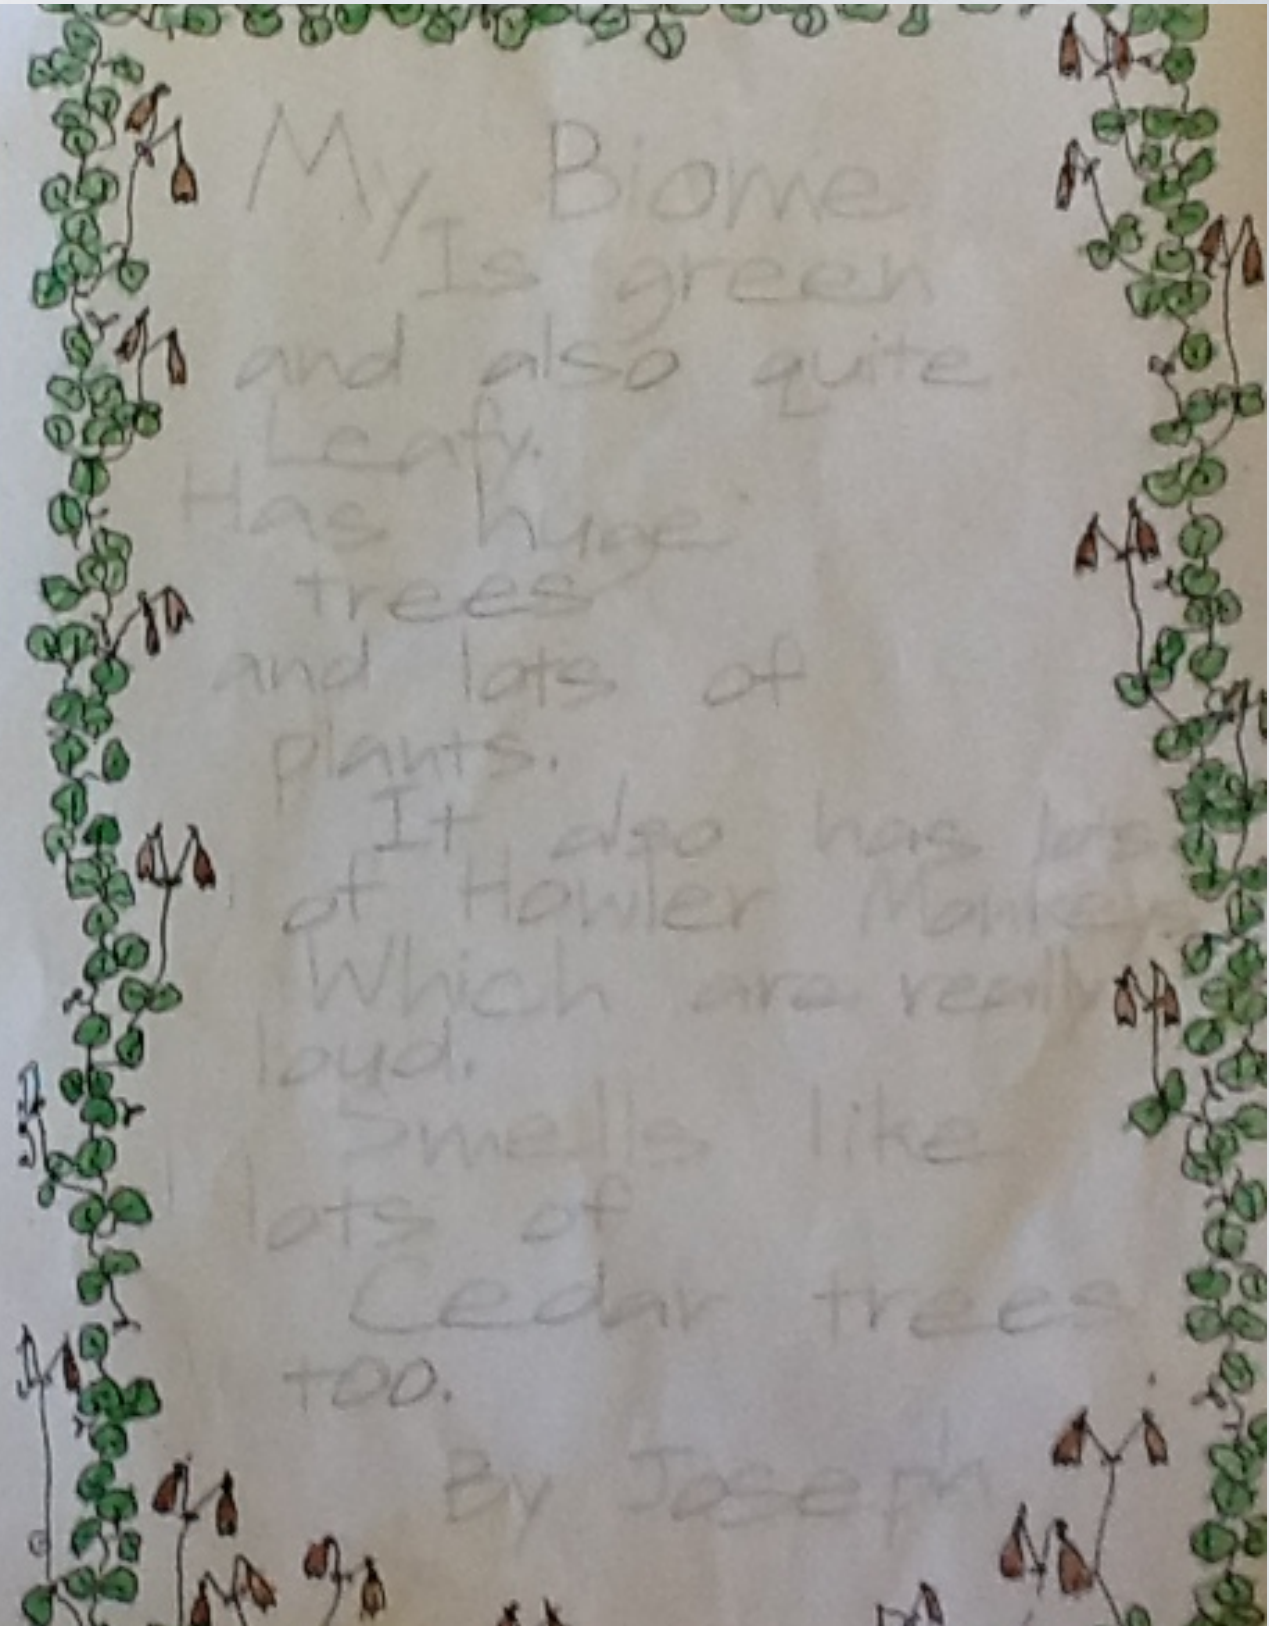 My Biome
Is green
and also quite
Leafy.
Has huge
trees
and lots of
plants.
It also has lots
of Howler Monkeys.
Which are really
loud.
Smells like
lots of
Cedar trees
too.
By Joseph